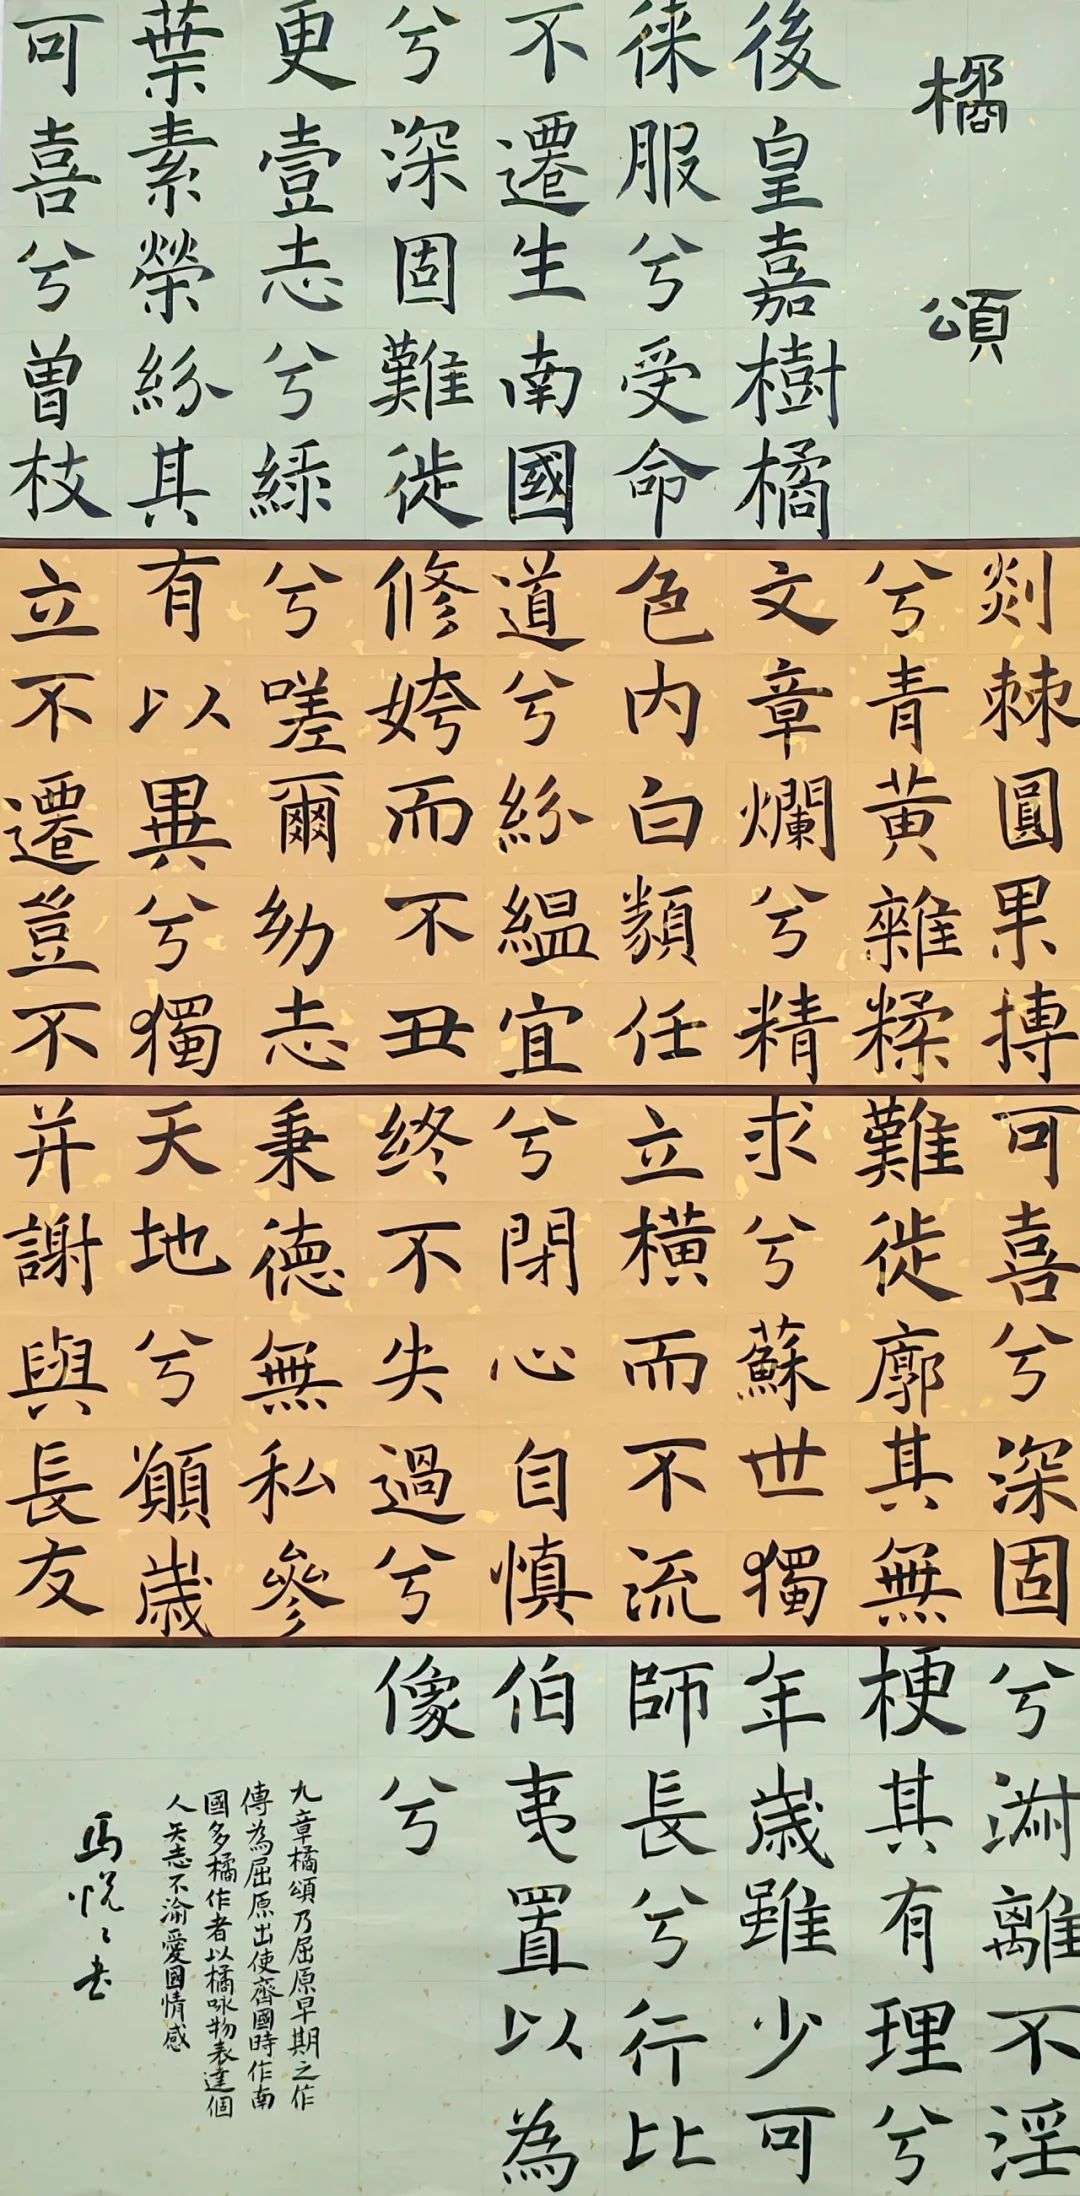 橘頌
後皇嘉樹橘
徠服兮受命
不遷生南國
兮深固難徙
更壹志兮綠
葉素榮紛其
可喜兮曾枝
剡棘圓果摶
兮青黃雜糅
文章爛兮精
色内白類任
道兮紛緼宜
修姱而不丑
兮嗟爾幼志
有以異兮獨
立不遷豈不
可喜兮深固
難徙廓其無
求兮蘇世獨
立橫而不流
兮閉心自慎
终不失過兮
秉德無私參
天地兮願歲
并謝與長友
兮淑離不淫
梗其有理兮
年歲雖少可
師長兮行比
伯夷置以為
像兮
九章橘頌乃屈原早期之作
傳為屈原出使齊國時作南
國多橘作者以橘咏物表達個
人矢志不渝愛國情感
馬悦〻书